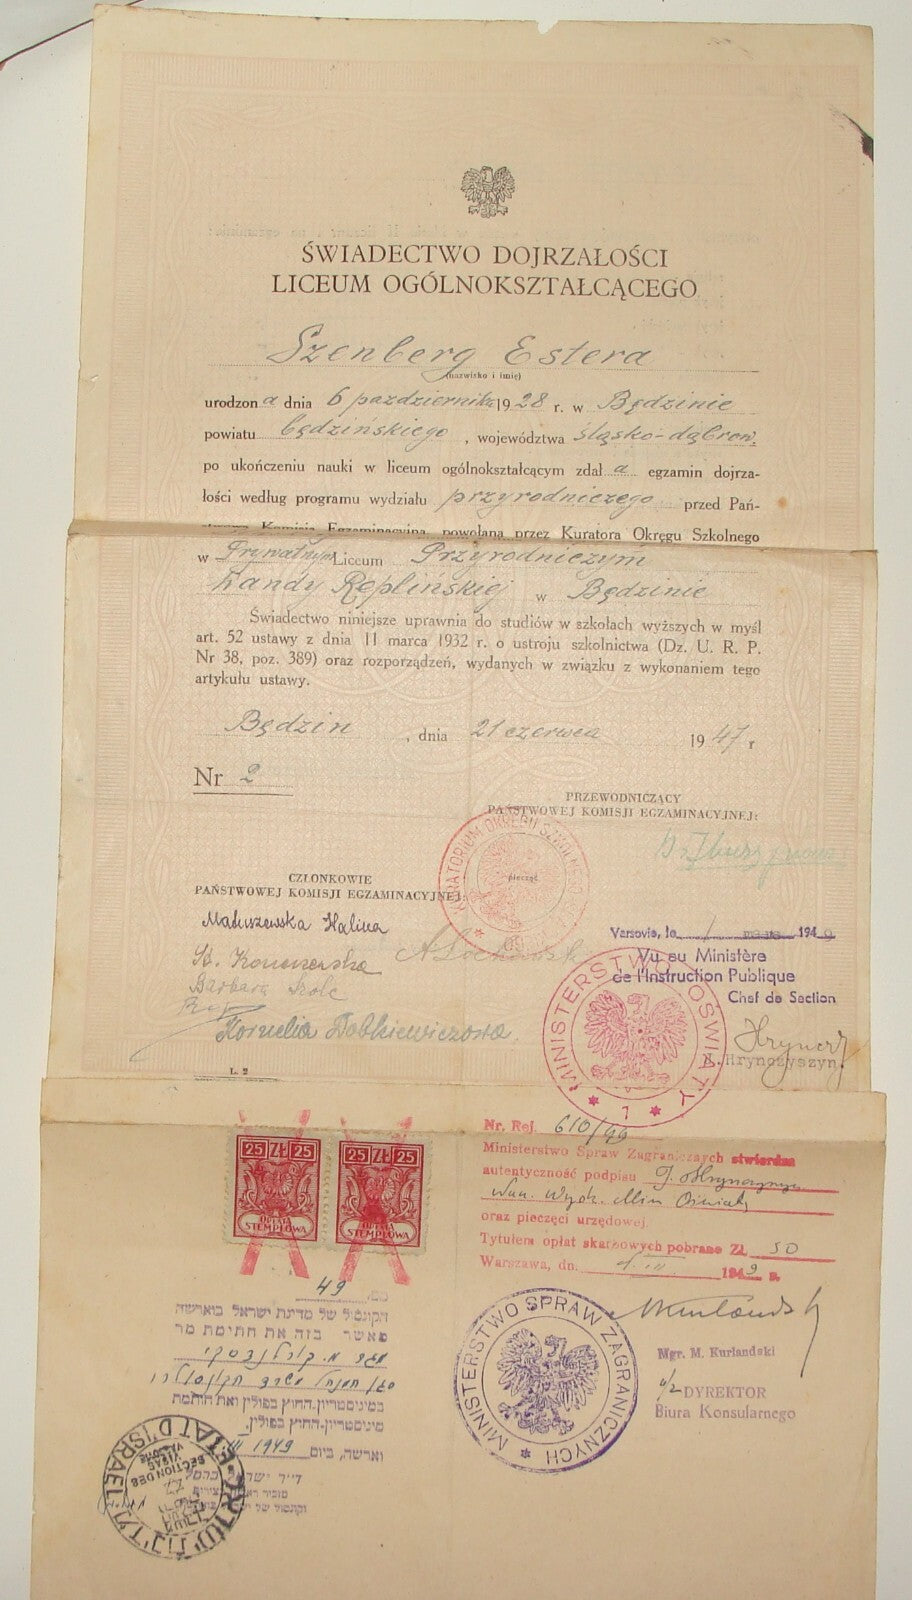 ŚWIADECTWO DOJRZAŁOŚCI
LICEUM OGÓLNOKSZTAŁCĄCEGO
Szenberg Estera
(nazwisko i imię)
urodzona dnia 6 października 1928 r. w Będzinie
powiatu będzińskiego, województwa śląsko-dąbrow.
po ukończeniu nauki w liceum ogólnokształcącym zdała egzamin dojrza-
łości według programu wydziału przyrodniczego przed Pań-
stwową Komisją Egzaminacyjną, powołaną przez Kuratora Okręgu Szkolnego
w Prywatnym Liceum Przyrodniczym
Wandy Replińskiej w Będzinie
Świadectwo niniejsze uprawnia do studiów w szkołach wyższych w myśl
art. 52 ustawy z dnia 11 marca 1932 r. o ustroju szkolnictwa (Dz. U. R. P.
Nr 38, poz. 389) oraz rozporządzeń, wydanych w związku z wykonaniem tego
artykułu ustawy.
Będzin, dnia 21 czerwca 1947 r
Nr 2
PRZEWODNICZĄCY
PAŃSTWOWEJ KOMISJI EGZAMINACYJNEJ:
KURATORIUM OKRĘGU SZKOLNEGO
pieczęć
CZŁONKOWIE
PAŃSTWOWEJ KOMISJI EGZAMINACYJNEJ:
Matuszewska Halina
Barbara
Kornelia Dobkiewiczowa
L. 2
Varsovie, le 1 mars 1949
Vu au Ministère
de l'Instruction Publique
Chef de Section
J. Hrynczyszyn
MINISTERSTWO OŚWIATY
1
Nr. Rej. 610/49
Ministerstwo Spraw Zagranicznych stwierdza
autentyczność podpisu J. Hrynczyszyn
Min. Oświaty
oraz pieczęci urzędowej.
Tytułem opłat skarbowych pobrano Zł. 50
Warszawa, dn. 1.III. 1949 r.
MINISTERSTWO SPRAW ZAGRANICZNYCH
Mgr. M. Kurlandski
w/z DYREKTOR
Biura Konsularnego
25 ZŁ 25
OPŁATA
STEMPLOWA
25 ZŁ 25
OPŁATA
STEMPLOWA
49
הקונסול של מדינת ישראל בוארשה
מאשר בזה את חתימת מר
מגר מ. קורלנדסקי
סגן המנהל משרד הקונסולרי
במיניסטריון החוץ בפולין ואת חותמת
מיניסטריון החוץ בפולין.
וארשה, ביום III 1949
ד"ר ישראל כרמל
ETAT D'ISRAEL
SECTION DES
VISAS
VARSOVIE